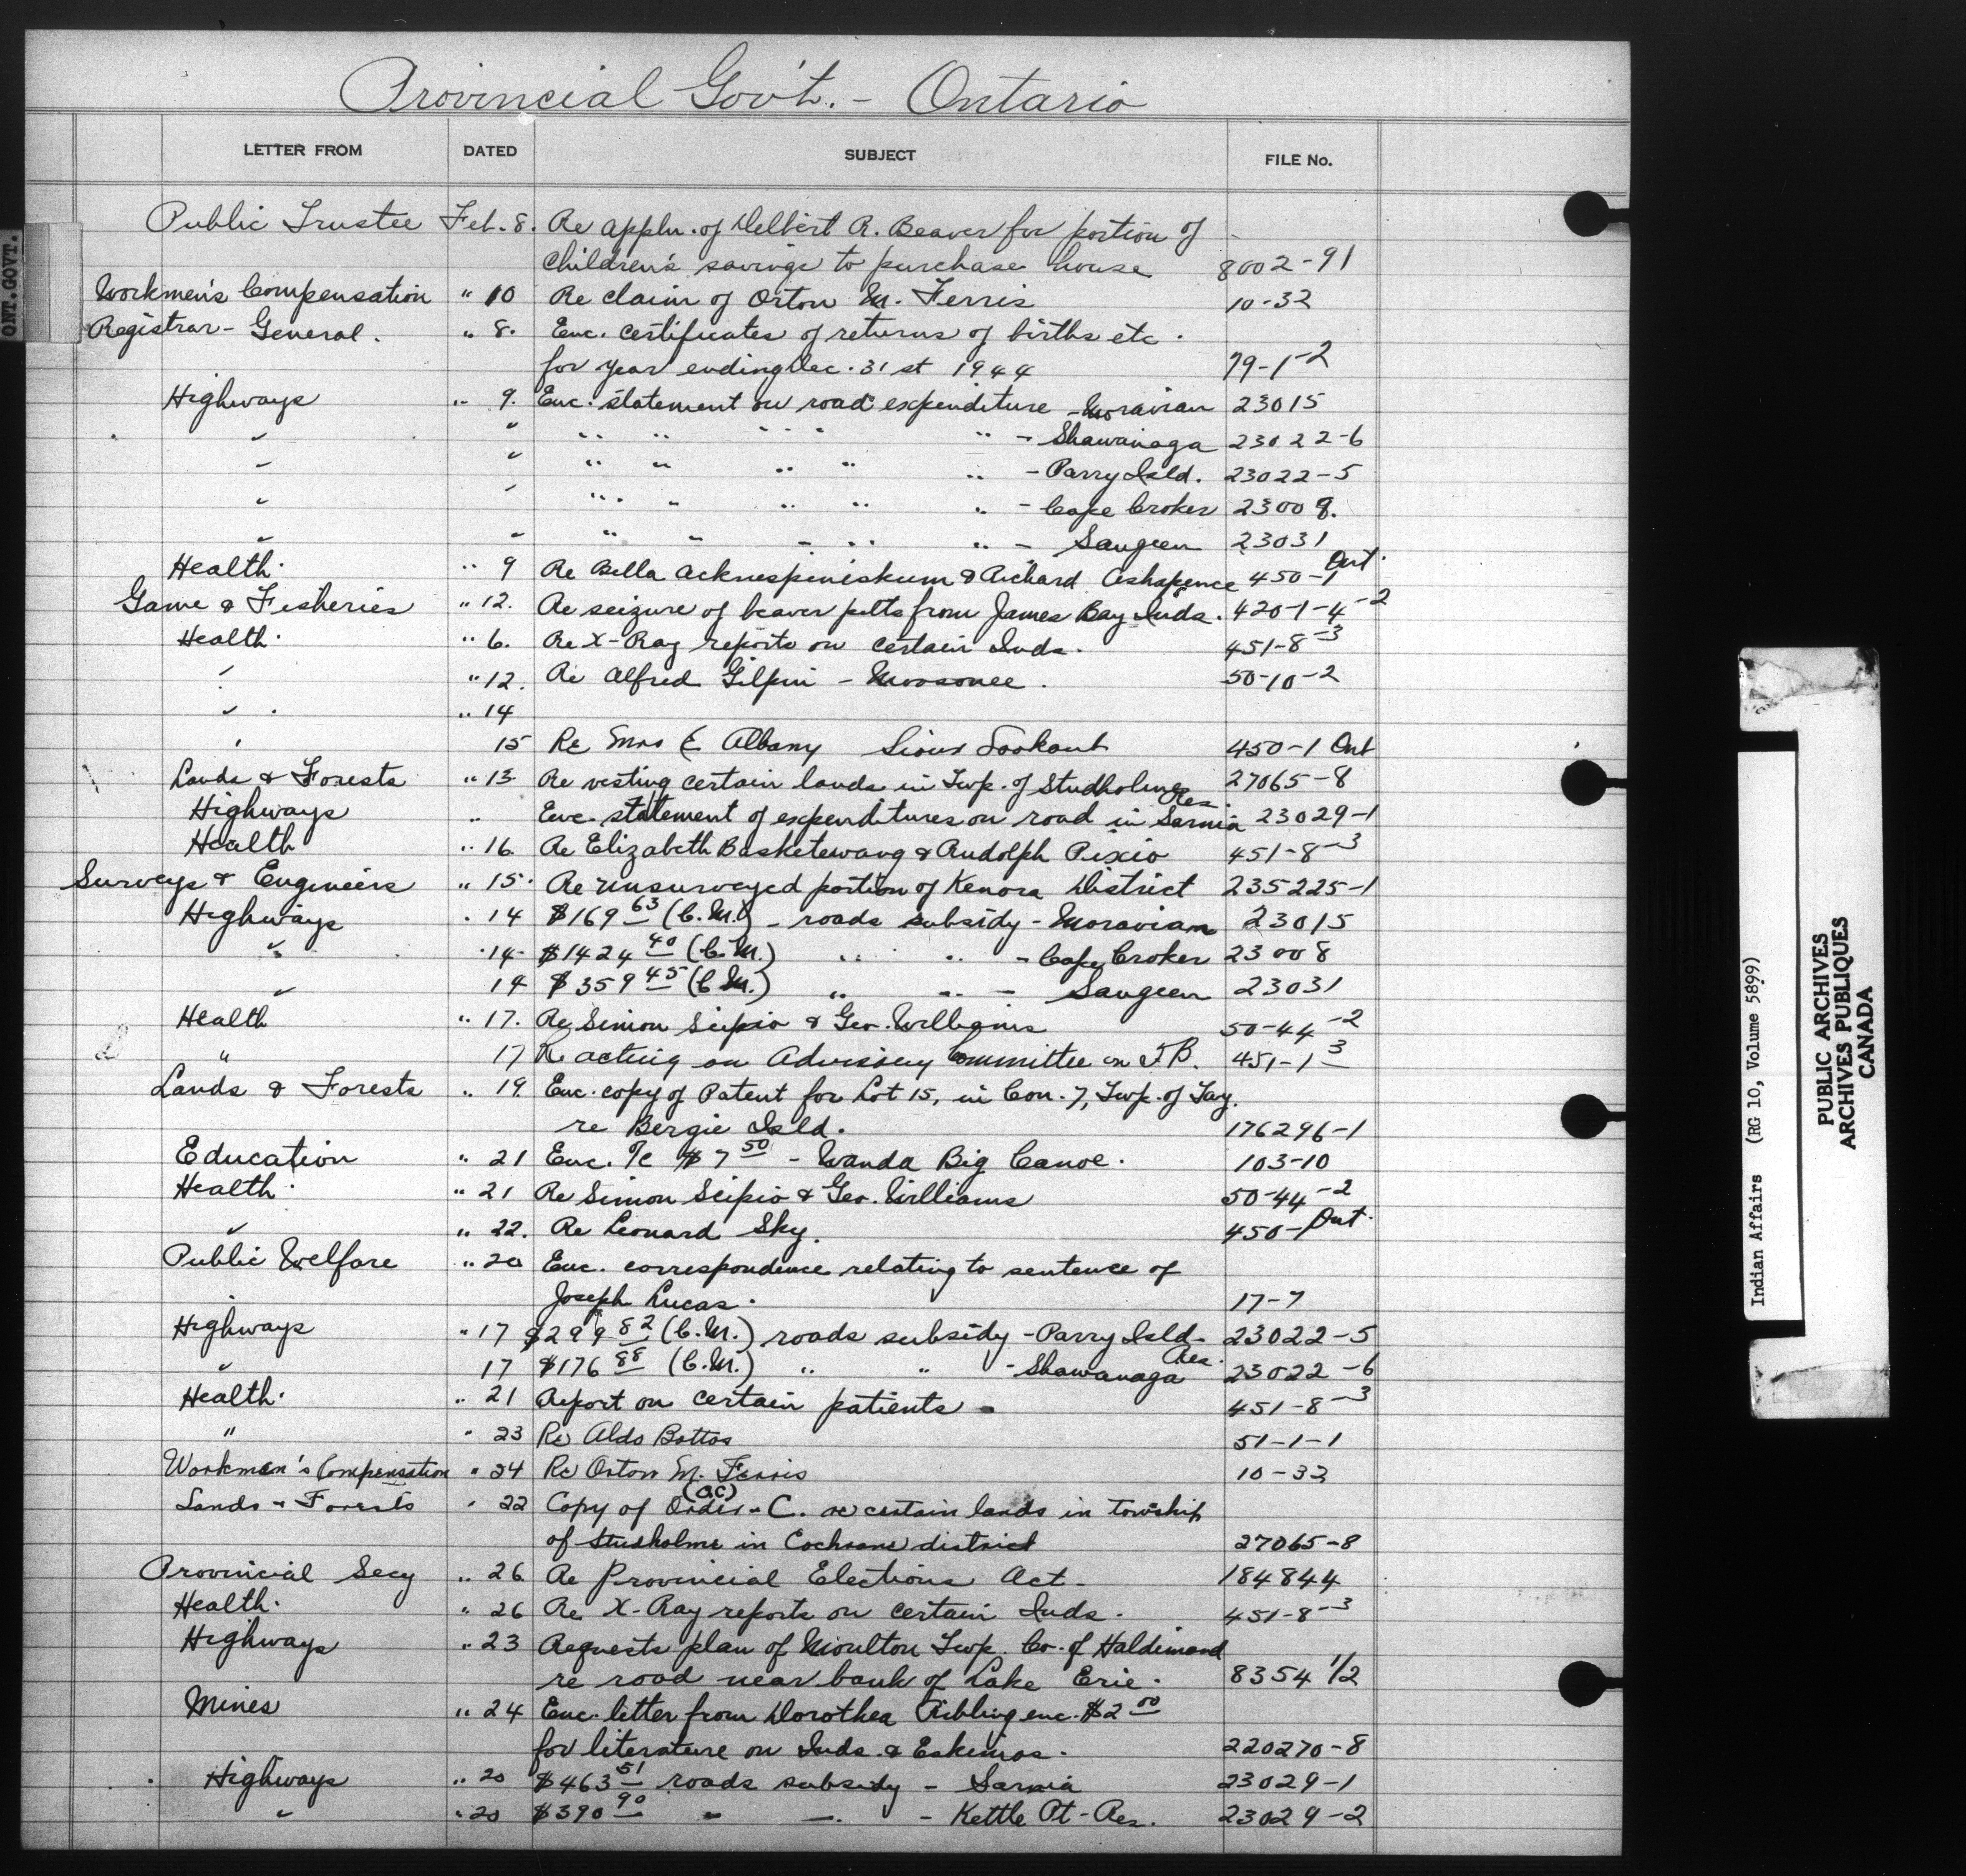 Provincial Gov't. - Ontario
LETTER FROM DATED SUBJECT FILE No.
ONT. GOVT.
Public Trustee Feb. 8. Re appln. of Delbert R. Beaver for portion of
children's savings to purchase house 8002-91
Workmen's Compensation " 10 Re claim of Orton M. Ferris 10-32
Registrar-General. " 8. Enc. certificates of returns of births etc.
for year ending Dec. 31st 1944 79-1-2
Highways " 9. Enc. statement on road expenditure - Moravian 23015
" " " " " " " - Shawanaga 23022-6
" " " " " " " - Parry Isld. 23022-5
" " " " " " " - Cape Croker 23008.
" " " " " " " - Saugeen 23031
Health. " 9 Re Bella & Richard 450-1 Ont.
Game & Fisheries " 12. Re seizure of beaver pelts from James Bay Inds. 420-1-4-2
Health. " 6. Re X-Ray reports on certain Inds. 451-8-3
" " 12. Re Alfred Gilpin - Moosonee. 50-10-2
" " 14
" 15 Re Mrs E. Albany Sioux Lookout 450-1 Ont
Lands & Forests " 13. Re vesting certain lands in Twp. of Studholme 27065-8
Highways " Enc. statement of expenditures on road in Sarnia Res. 23029-1
Health " 16. Re Elizabeth Basketewang & Rudolph Pixio 451-8-3
Surveys & Engineers " 15. Re unsurveyed portion of Kenora District 235225-1
Highways " 14 $169 63 (C.M.) - roads subsidy - Moravian 23015
" " 14. $1424 40 (C.M.) " " - Cape Croker 23008
" 14 $359 45 (C.M.) " " - Saugeen 23031
Health " 17. Re Simon Scipio & Geo. Williams 50-44-2
" 17 Re acting on Advisory Committee on T.B. 451-1-3
Lands & Forests " 19. Enc. copy of Patent for Lot 15, in Con. 7, Twp. of Tay.
re Bergie Isld. 176296-1
Education " 21 Enc. Tc $7 50 - Wanda Big Canoe. 103-10
Health. " 21 Re Simon Scipio & Geo. Williams 50-44-2
" " 22. Re Leonard Sky. 450-1 Ont.
Public Welfare " 20 Enc. correspondence relating to sentence of
Joseph Lucas. 17-7
Highways " 17 $299 82 (C.M.) roads subsidy - Parry Isld. 23022-5
" 17 $176 88 (C.M.) " " - Shawanaga Res. 23022-6
Health. " 21 Report on certain patients - 451-8-3
" " 23 Re Aldo Bottos 51-1-1
Workmen's Compensation " 24 Re Orton M. Ferris 10-32
Lands & Forests " 22 Copy of Order-C. (OC) re certain lands in township
of Studholme in Cochrane district 27065-8
Provincial Secy " 26 Re Provincial Elections Act - 184844
Health. " 26 Re X-Ray reports on certain Inds. 451-8-3
Highways " 23 Requests plan of Moulton Twp. Co. of Haldimand
re road near bank of Lake Erie. 8354 1/2
Mines " 24 Enc. letter from Dorothea Ribling enc. $2 00
for literature on Inds. & Eskimos. 220270-8
Highways " 20 $463 51 roads subsidy - Sarnia 23029-1
" " 20 $390 90 " " - Kettle Pt. Res. 23029-2
Indian Affairs (RG 10, Volume 5899)
PUBLIC ARCHIVES
ARCHIVES PUBLIQUES
CANADA